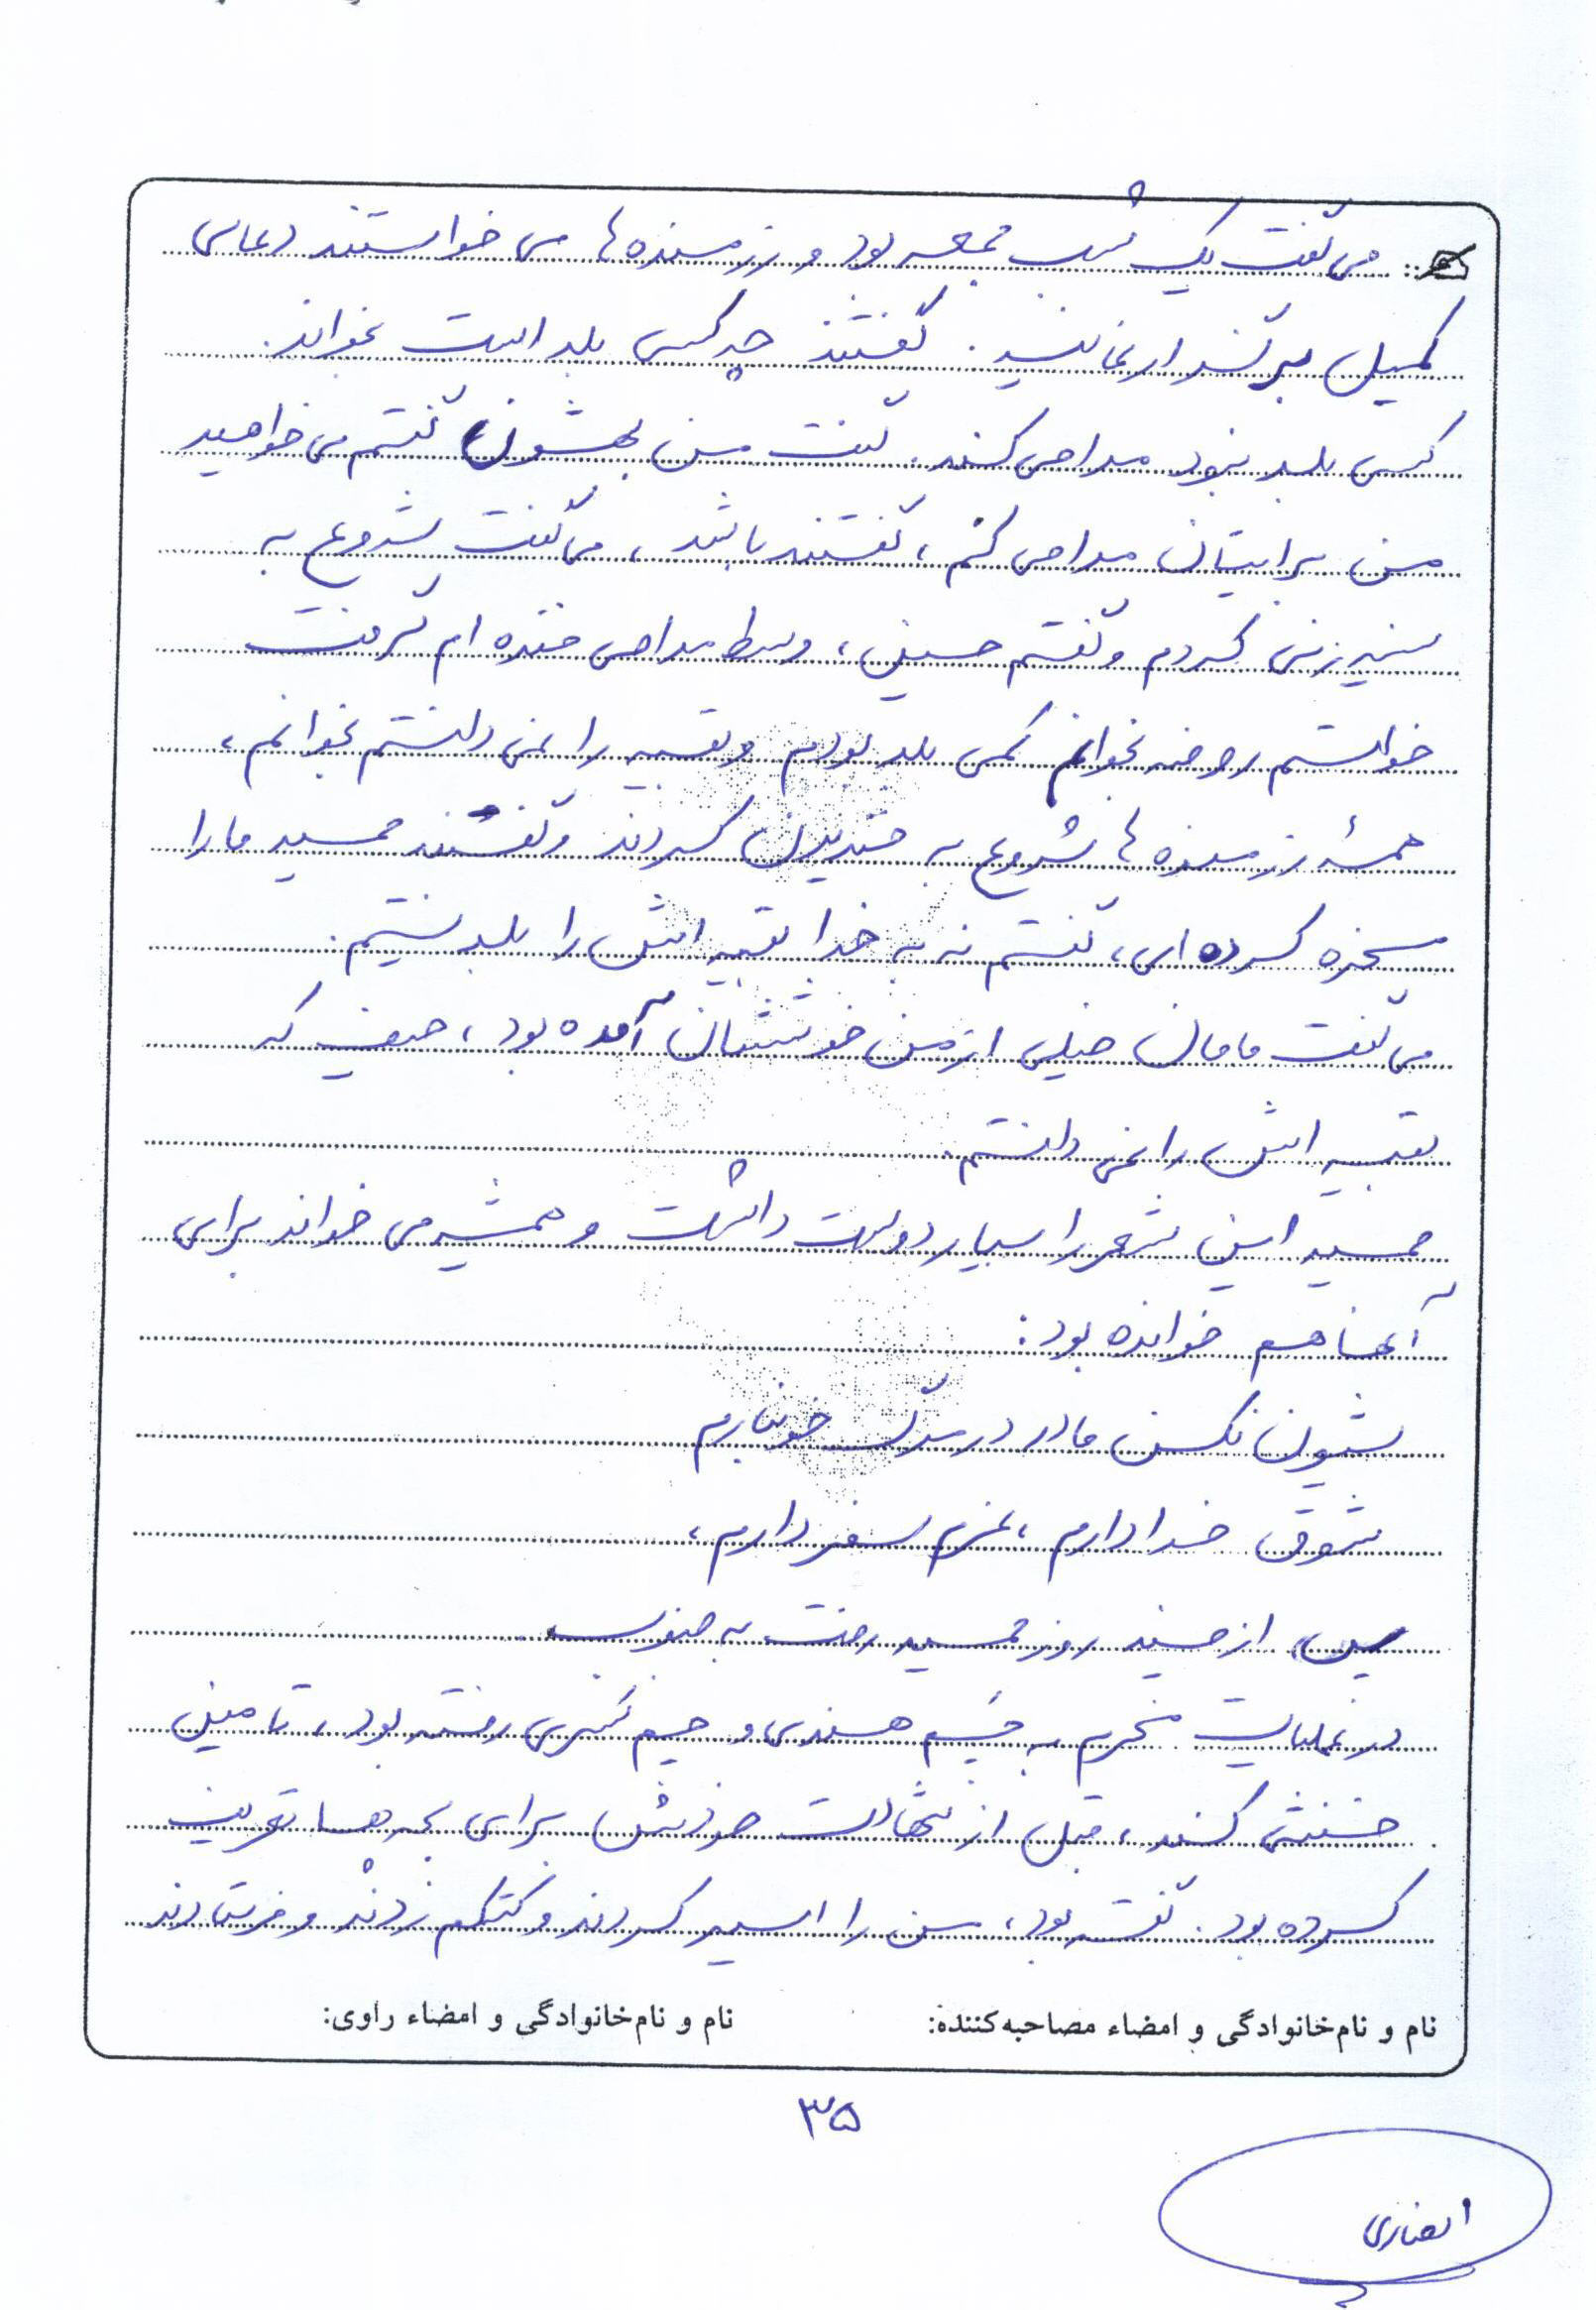 می گفت یک شب جمعه بود و رزمنده ها می خواستند دعای
کمیل برگزار نمائید. گفتند چه کسی بلد است بخواند.
کسی بلد نبود مداحی کند. گفت من بهشون گفتم می خواهید
من برایتان مداحی کنم، گفتند باشد، می گفت شروع به
سینه زنی کردم و گفتم حسین، وسط مداحی خنده ام گرفت
خواستم روضه بخوانم کمی بلد بودم و بقیه را نمی دانستم بخوانم،
همهٔ رزمنده ها شروع به خندیدن کردند و گفتند حمید ما را
مسخره کرده ای، گفتم نه به خدا بقیه اش را بلد نیستم.
می گفت مامان خیلی از من خوششان آمده بود، حیف که
بقیه اش را نمی دانستم.
حمید این شعر را بسیار دوست داشت و همیشه می خواند برای
آنها هم خوانده بود:
شیون نکن مادر در مرگ خونبارم
شوق خدا دارم، عزم سفر دارم،
پس از چند روز حمید رفت به جنوب.
در عملیات محرم به چَم هندی و چم سری رفته بود، تا مین
خنثی کند، قبل از شهادت خودش برای بچه ها تعریف
کرده بود. گفته بود، من را اسیر کردند و کتکم زدند و فرستادند
نام و نام‌خانوادگی و امضاء مصاحبه‌کننده: نام و نام‌خانوادگی و امضاء راوی:
۳۵
انصاری